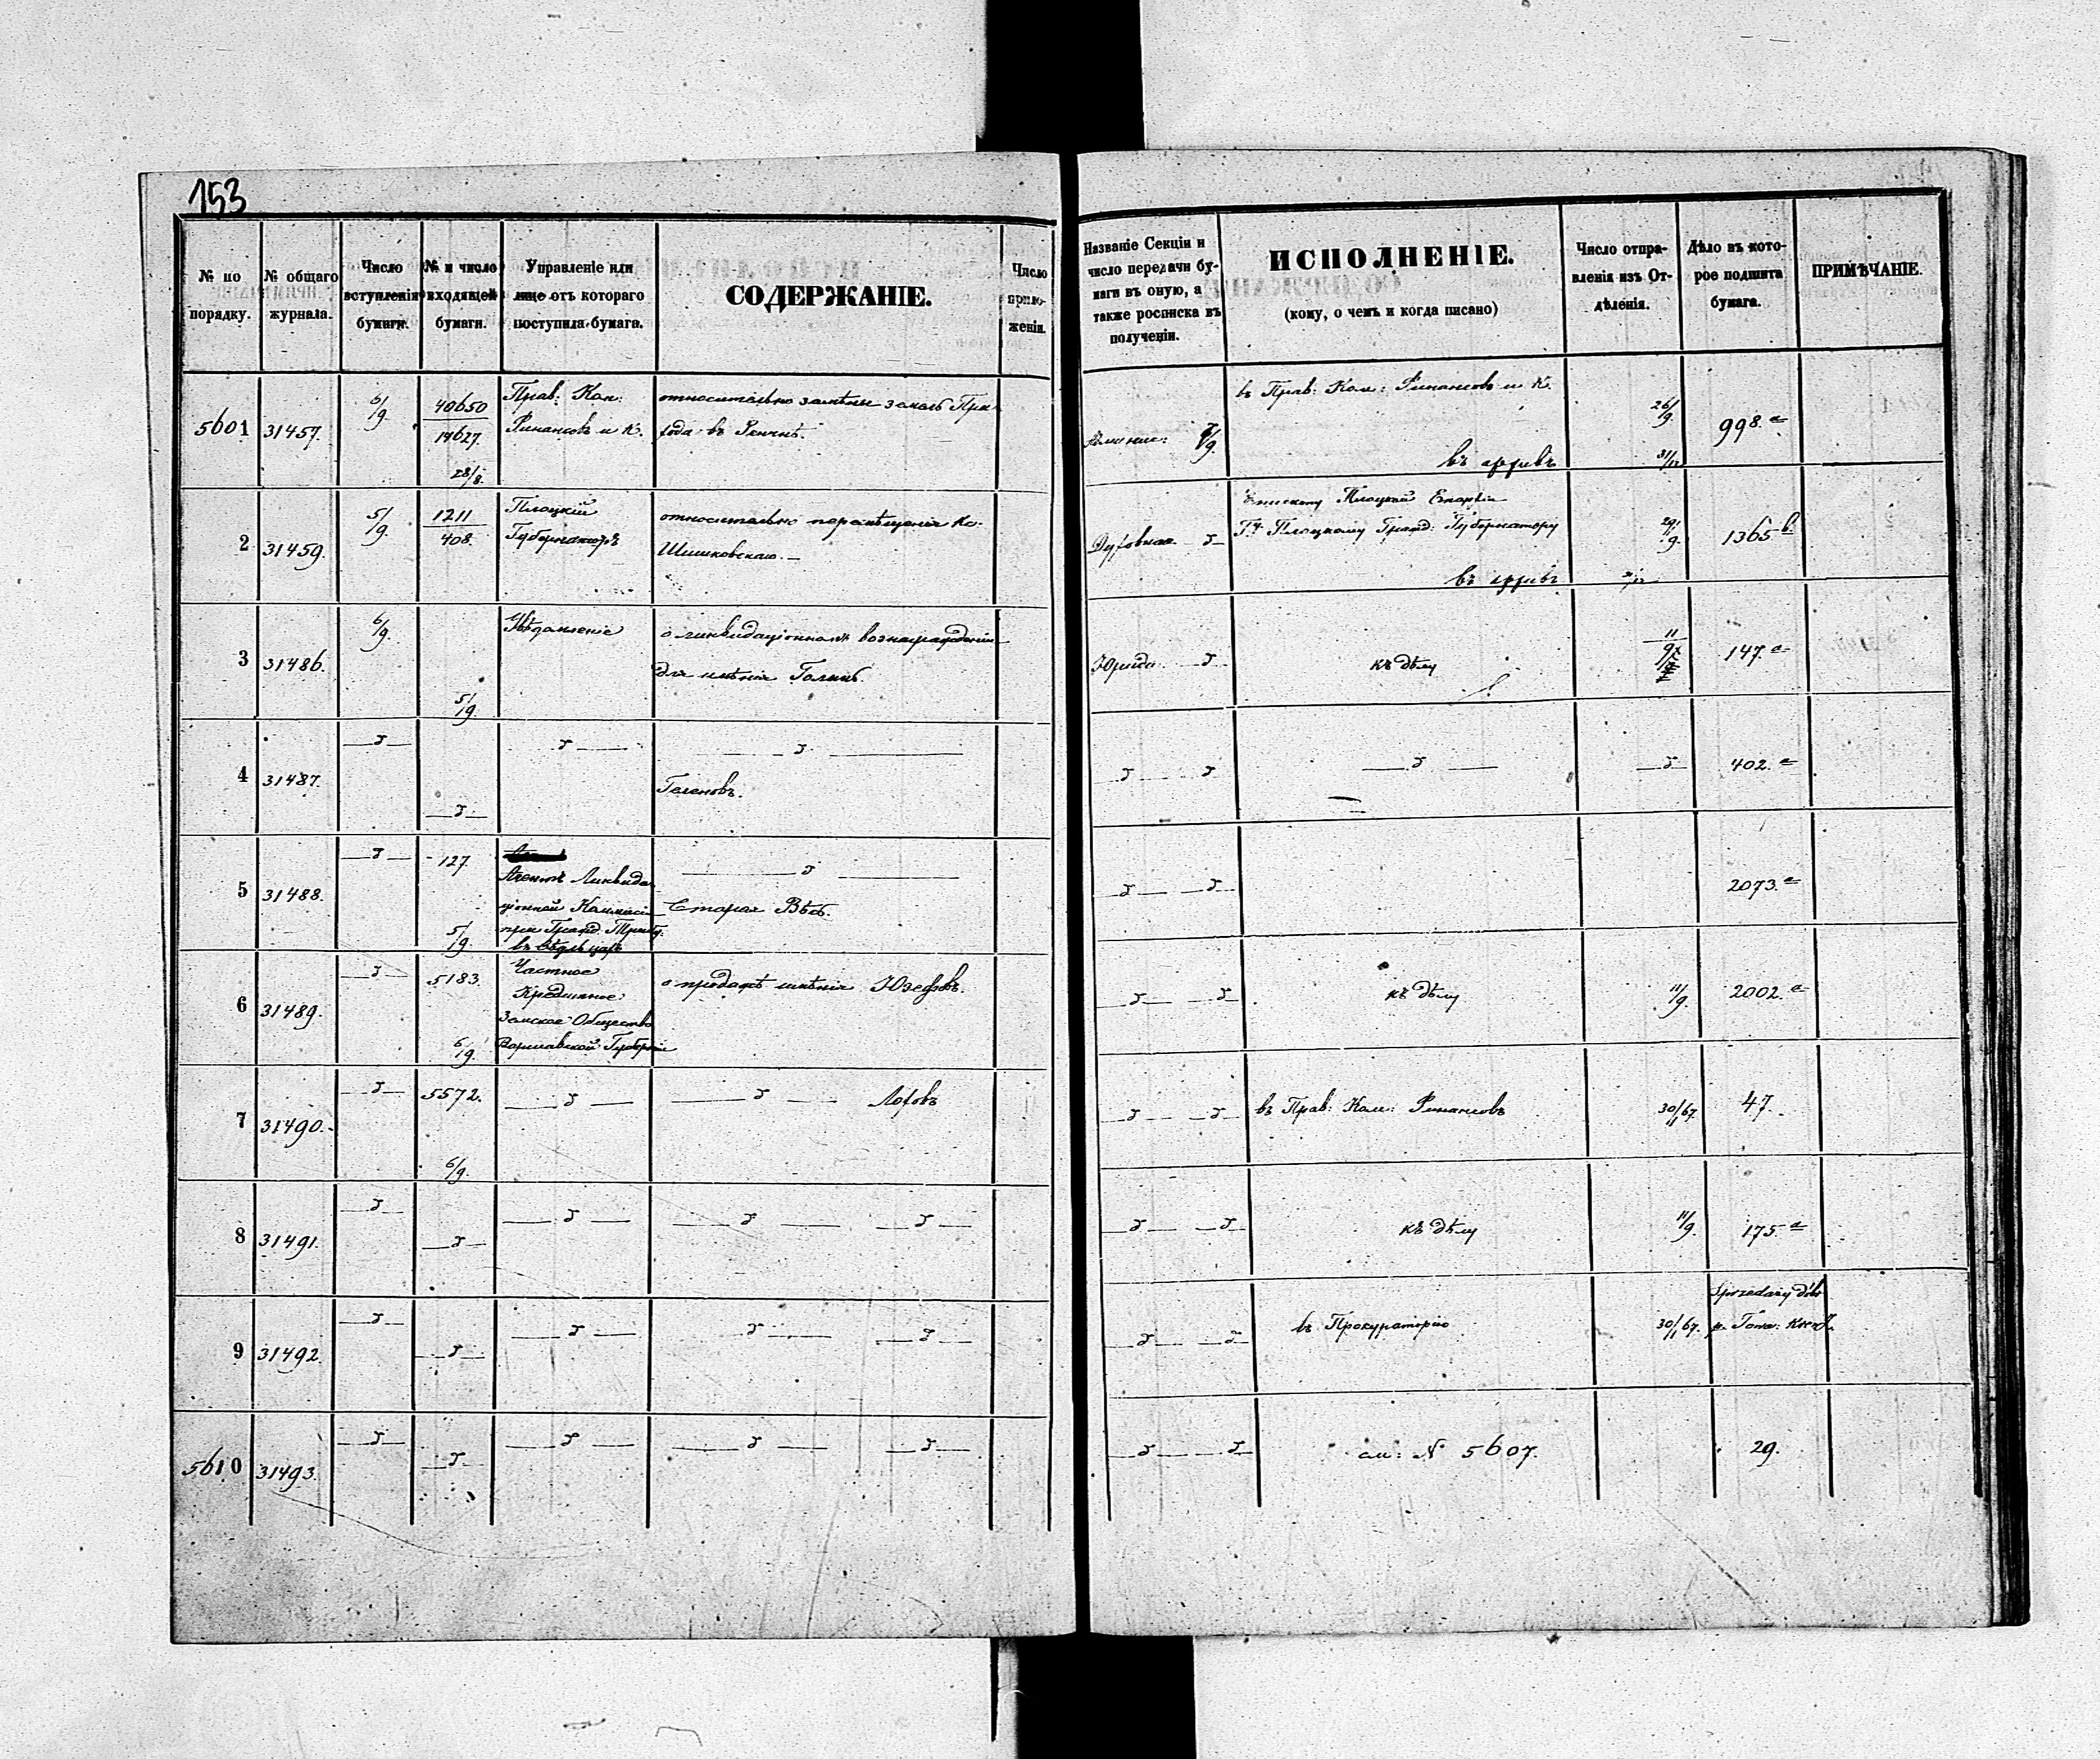 153
№ по порядку.
№ общаго журнала.
Число вступленія бумаги.
№ и число входящей бумаги.
Управленіе или лице отъ котораго поступила бумага.
СОДЕРЖАНІЕ.
Число приложенія.
Названіе Секціи и число передачи бумаги въ оную, а также росписка въ полученіи.
ИСПОЛНЕНІЕ.
(кому, о чемъ и когда писано)
Число отправленія изъ Отдѣленія.
Дѣло въ которое подшита бумага.
ПРИМѢЧАНІЕ.
5601 31457. 6/9 40650
19627.
28/8.
Прав: Ком:
Финансовъ и К.
относительно
7/9.
въ Прав: Ком: Финансовъ и К.
26/9.
въ архивъ 31/12
998. а
2 31459. 5/9. 1211
408.
Плоцкій
Губернаторъ
относительно перемѣщенія Кс.
Шишковскаго.
Духовная
Епископу Плоцкой Епархіи
Гу Плоцкому Гражд: Губернатору
29/9.
въ архивъ
1365 b
3 31486. 6/9.
5/9.
Увѣдомленіе
о ликвидаціонномъ вознагражденіи
для имѣнія
Юриди.
къ дѣлу
11/9
147. а
4 31487.
402. а
5 31488. 127.
5/9.
Агентъ Ликвида
ціонной Коммисіи
при Гражд. Триб.
Старая Весь.
2073. а
6 31489. 5183.
6/9.
Частное
Кредитное
Земское Общество
Варшавской Губерніи
о продажѣ имѣнія Юзефовъ.
къ дѣлу
11/9.
2002. а
7 31490. 5572.
6/9.
Лоховъ
въ Прав: Ком: Финансовъ
30/11 67.
47.
8 31491.
къ дѣлу
11/9.
175. а
9 31492.
въ Прокураторію
30/11 67.
Sprzedaży dób
5610 31493.
см: № 5607.
29.